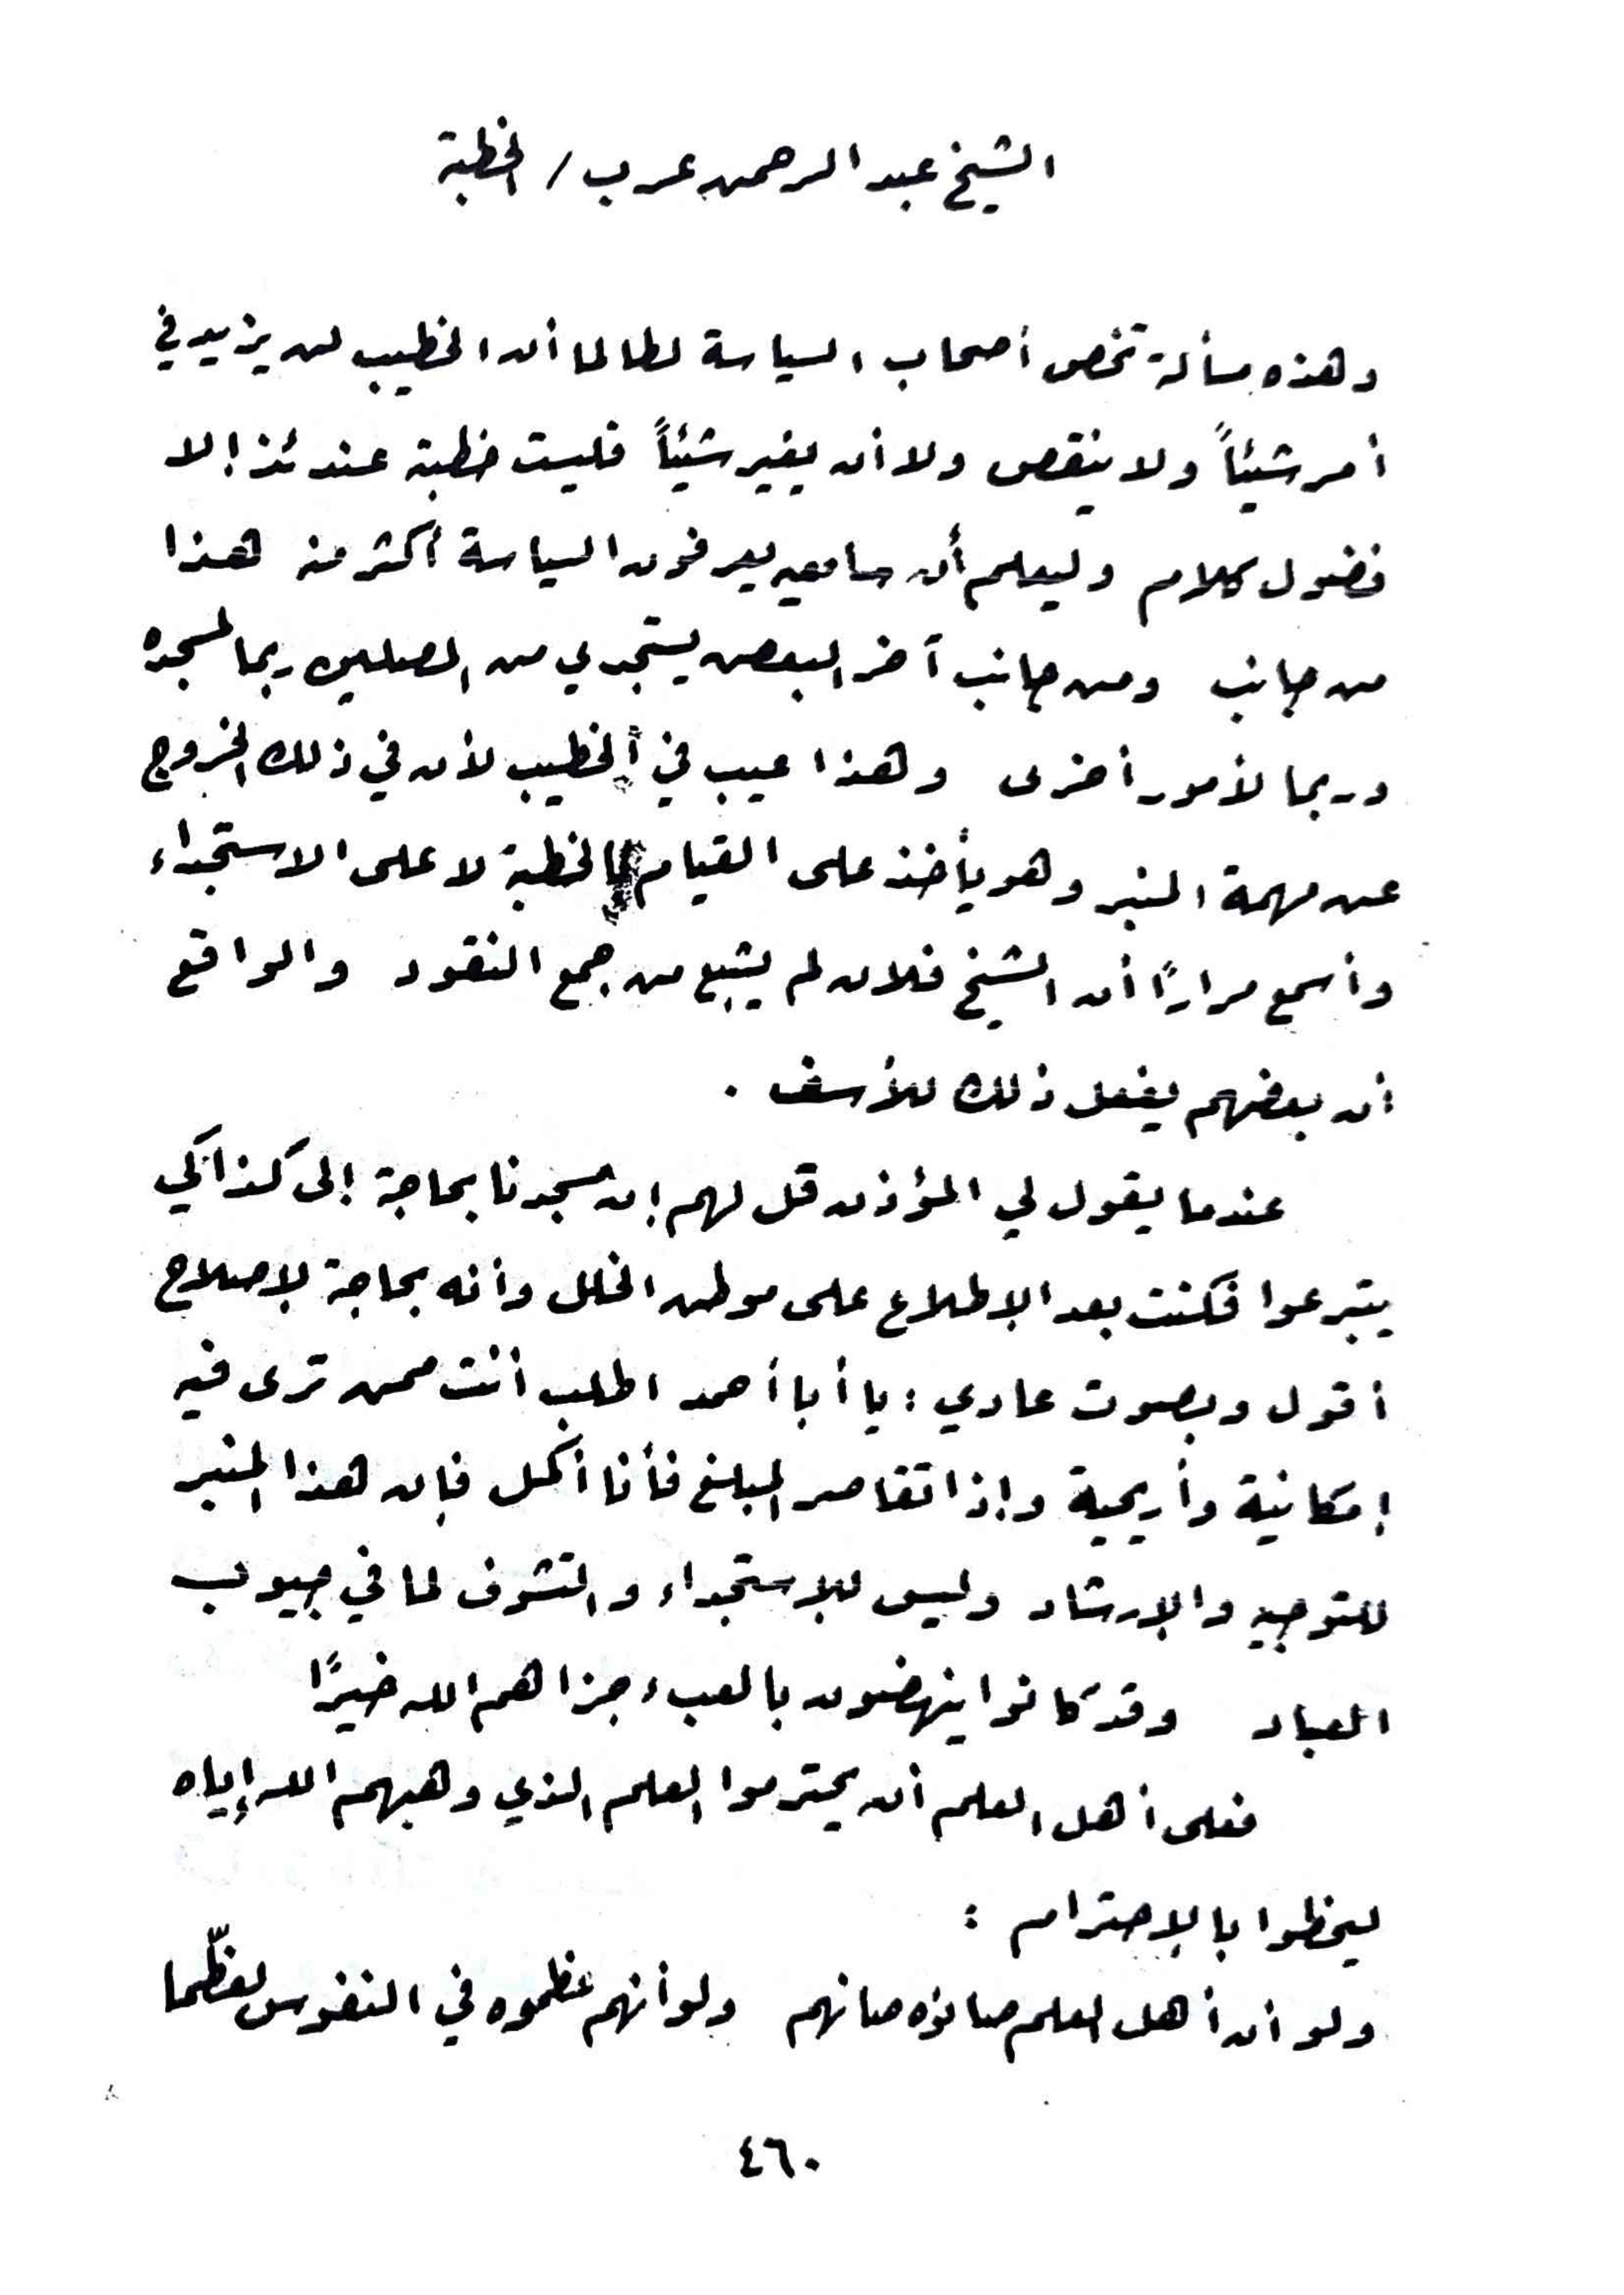 الشيخ عبد الرحمن عرب / الخطبة
وهذه مسألة تخص أصحاب السياسة لطالما أن الخطيب لن يزيد في
أمر شيئاً ولا ينقص ولا أن يغير شيئاً فليست خطبة عندئذ إلا
فضول كلام وليعلم أن سامعيه يعرفون السياسة أكثر منه هذا
من جانب ومن جانب آخر البعض يستجدي من المصلين ربما لمسجده
وربما لأمور أخرى وهذا عيب في الخطيب لأن في ذلك الخروج
عن مهمة المنبر وهو يأخذ على القيام بالخطبة لا على الاستجداء
وأسمع مراراً أن الشيخ فلان لم يشبع من جمع النقود والواقع
أن بعضهم يفعل ذلك للأسف .
عندما يقول لي المؤذن قل لهم إن مسجدنا بحاجة إلى كذا كي
يتبرعوا فكنت بعد الإطلاع على موطن الخلل وأنه بحاجة لإصلاح
أقول وبصوت عادي : يا أبا أحمد اطلب أنت ممن ترى فيه
إمكانية وأريحية وإذا تقاصر المبلغ فأنا أكمل فإن هذا المنبر
للتوجيه والإرشاد وليس للإستجداء والتشوف لما في جيوب
العباد وقد كانوا ينهضون بالعبء جزاهم الله خيرًا
فعلى أهل العلم أن يحترموا العلم الذي وهبهم الله إياه
ليحظوا بالإحترام :
ولو أن أهل العلم صانوه صانهم ولو أنهم عظموه في النفوس لعظّما
٤٦٠